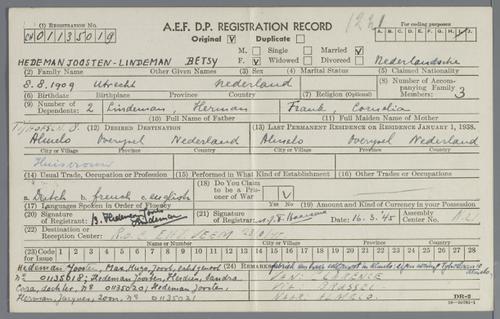 (1) REGISTRATION NO.
01135019
A.E.F. D.P. REGISTRATION RECORD
Original V Duplicate
1221
For coding purposes
A. B. C. D. E. F. G. H. I. J.
M. Single Married V
F. V Widowed Divorced
HEDEMAN JOOSTEN-LINDEMAN BETSY
Nederlandsche
(2) Family Name Other Given Names (3) Sex (4) Marital Status (5) Claimed Nationality
8.8.1909 Utrecht Nederland
(6) Birthdate Birthplace Province Country (7) Religion (Optional)
(8) Number of Accompanying Family Members 3
(9) Number of Dependents: 2 Lindeman, Herman Frank, Cornelia
(10) Full Name of Father (11) Full Maiden Name of Mother
(12) DESIRED DESTINATION (13) LAST PERMANENT RESIDENCE OR RESIDENCE JANUARY 1, 1938.
Almelo Overysel Nederland Almelo Overysel Nederland
City or Village Province Country City or Village Province Country
Huisvrouw
(14) Usual Trade, Occupation or Profession (15) Performed in What Kind of Establishment (16) Other Trades or Occupations
a. Dutch b. french c. english
(17) Languages Spoken in Order of Fluency
(18) Do You Claim to be a Prisoner of War V
(19) Amount and Kind of Currency in your Possession
(20) Signature of Registrant:
(21) Signature of Registrar:
Date: 16.3.45
Assembly Center No.
(22) Destination or Reception Center:
Name or Number City or Village Province Country
(23) Code for Issue 1 2 3 4 5 6 7 8 9 10 11 12 13 14 15 16 17 18 19 20 21 22 23 24 25 26 27 28
(24) REMARKS
Hedeman Joosten, Max Hugo, Joost, echtgenoot
nº 01135018; Hedeman Joosten,
Cora, dochter, nº 01135020; Hedeman Joosten,
Herman, Jacques, zoon, nº 01135021
DR-2